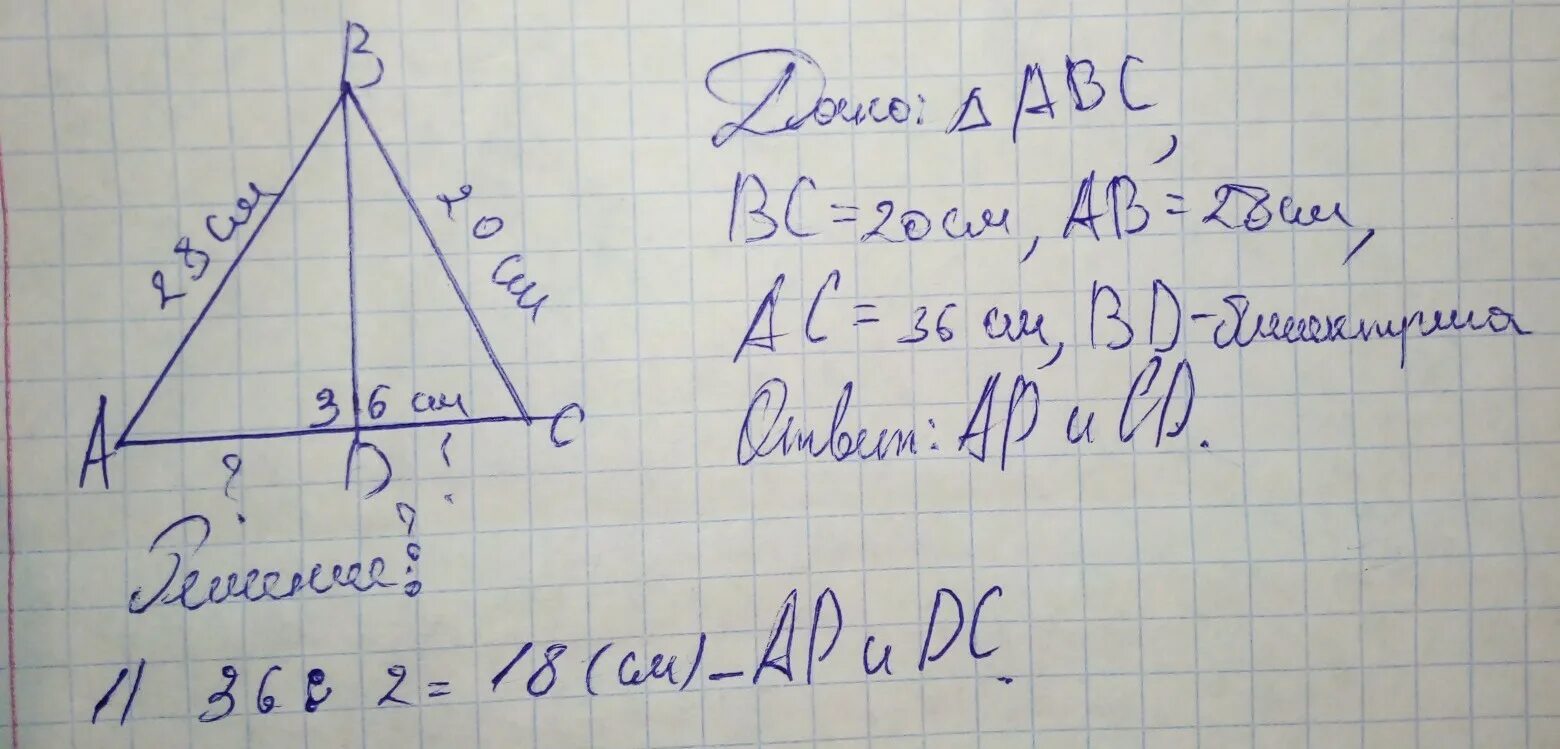 B
28 см
20 см
36 см
A
D
C
?
?
Дано: △ ABC,
BC = 20 см, AB = 28 см,
AC = 36 см, BD - биссектриса
Ответ: AD и CD.
Решение:
1) 36 : 2 = 18 (см) - AD и DC.